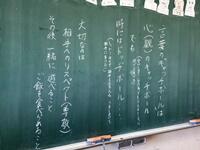 言葉のキャッチボールは
心(親)のキャッチボール
でも
時にはドッヂボール…
大切なのは
相手へのリスペクト(尊敬)
その後 一緒に 遊べること
ご飯を食べれること